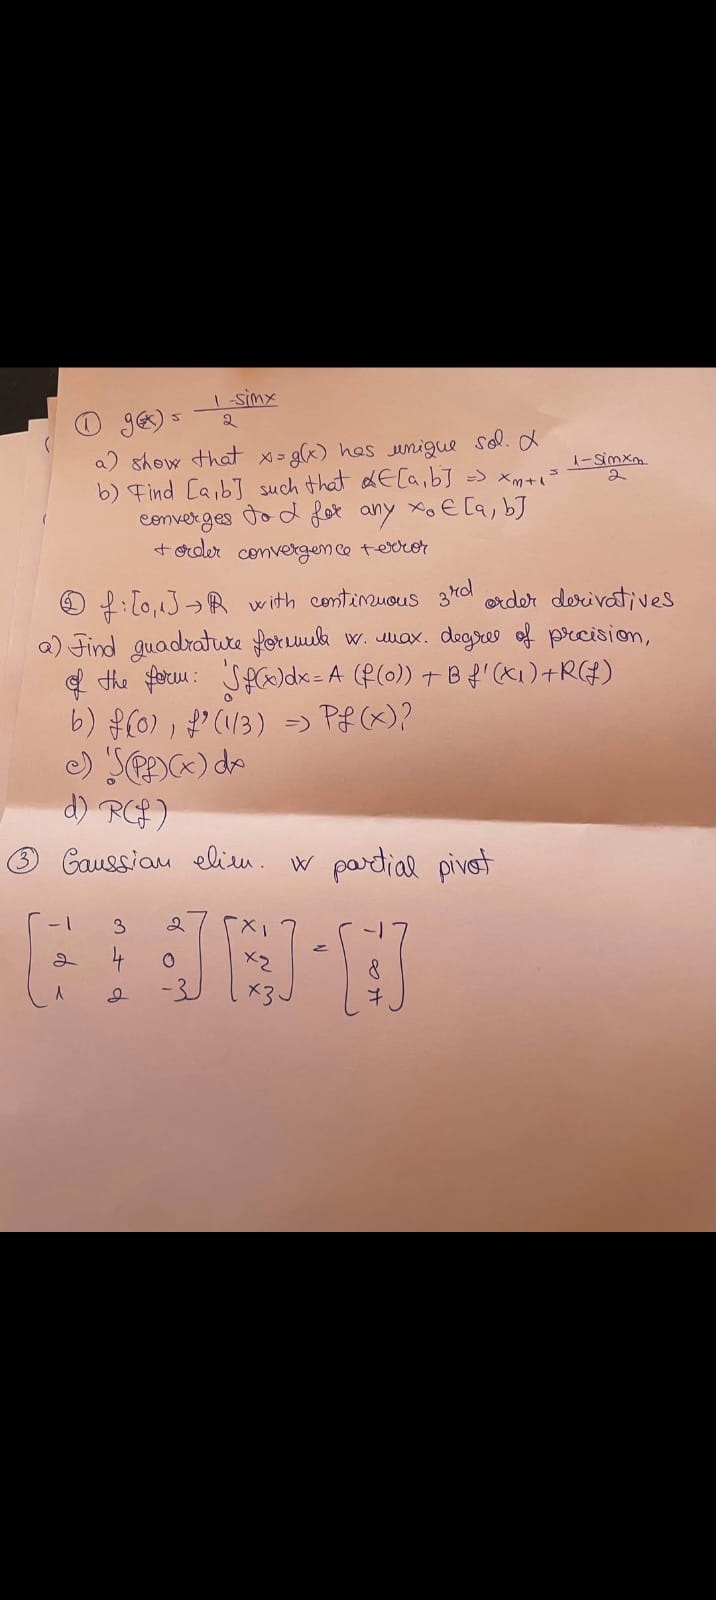 ① g(x) = (1-sinx)/2
a) show that x=g(x) has unique sol. α
b) Find [a,b] such that α∈[a,b] => xₙ₊₁ = (1-sinxₙ)/2
converges to α for any x₀∈[a,b]
+ order convergence + error
② f:[0,1]→ℝ with continuous 3rd order derivatives
a) Find quadrature formula w. max. degree of precision,
of the form: ₀¹∫f(x)dx = A (f(0)) + B f'(x₁) + R(f)
b) f(0), f'(1/3) => Pf(x)?
c) ₀¹∫(Pf)(x) dx
d) R(f)
③ Gaussian elim. w partial pivot
[-1 3 2] [x₁] = [-1]
[2 4 0] [x₂] [8]
[1 2 -3] [x₃] [7]